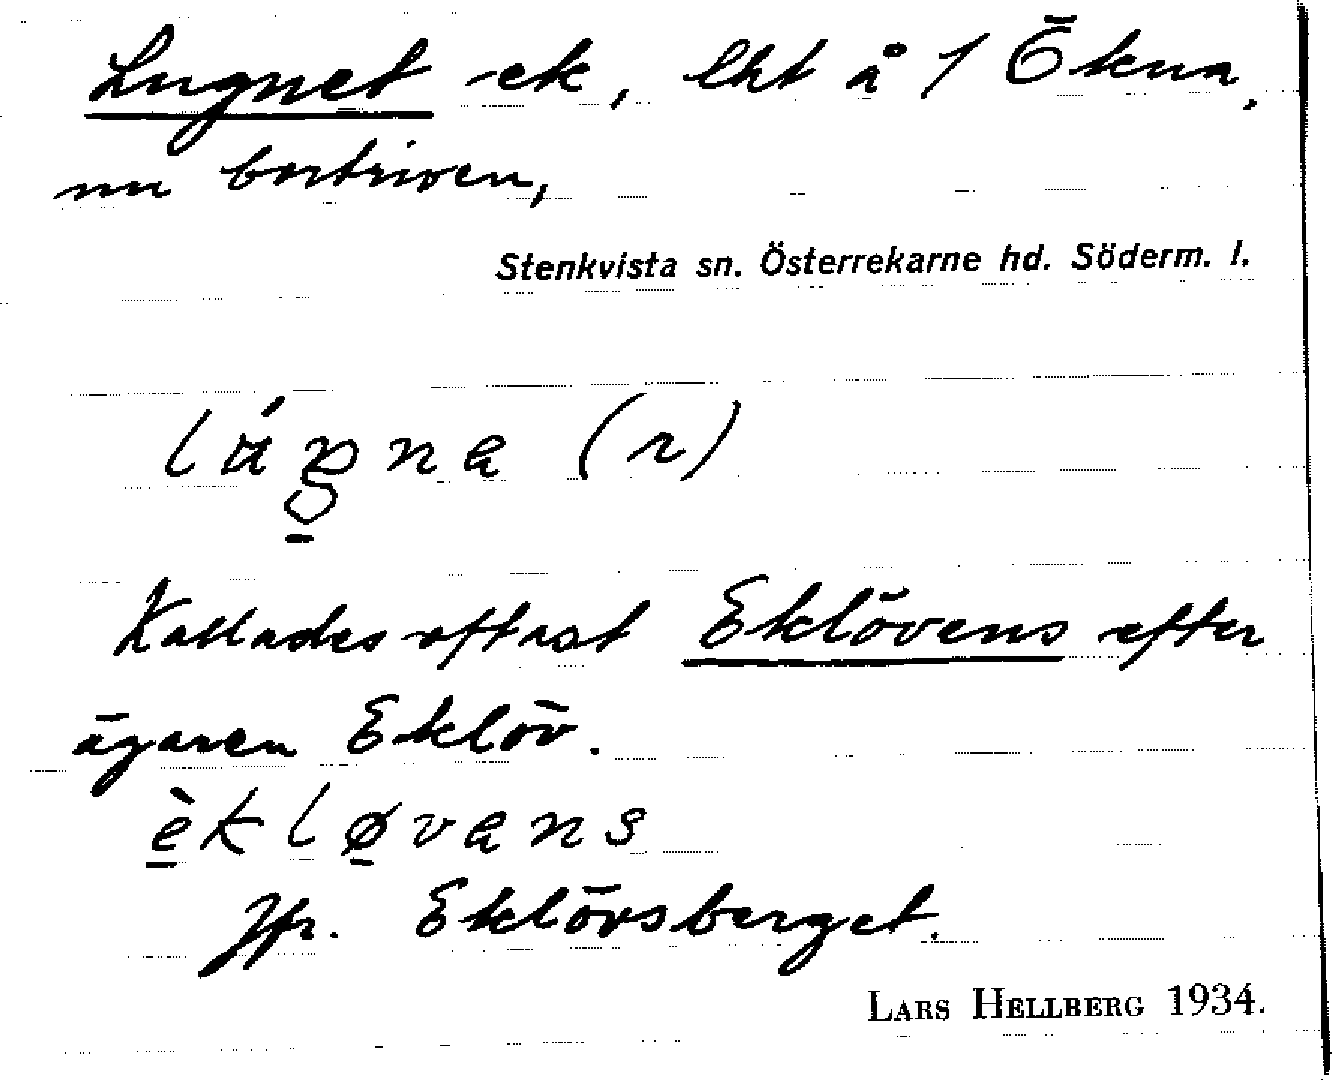 Lugnet -ek, lht å 1 Ökna,
nu bortriven,
Stenkvista sn. Österrekarne hd. Söderm. l.
(r)
Kallades oftast Eklövens efter
ägaren Eklöv.
èkløvans
Jfr. Eklövsberget.
LARS HELLBERG 1934.